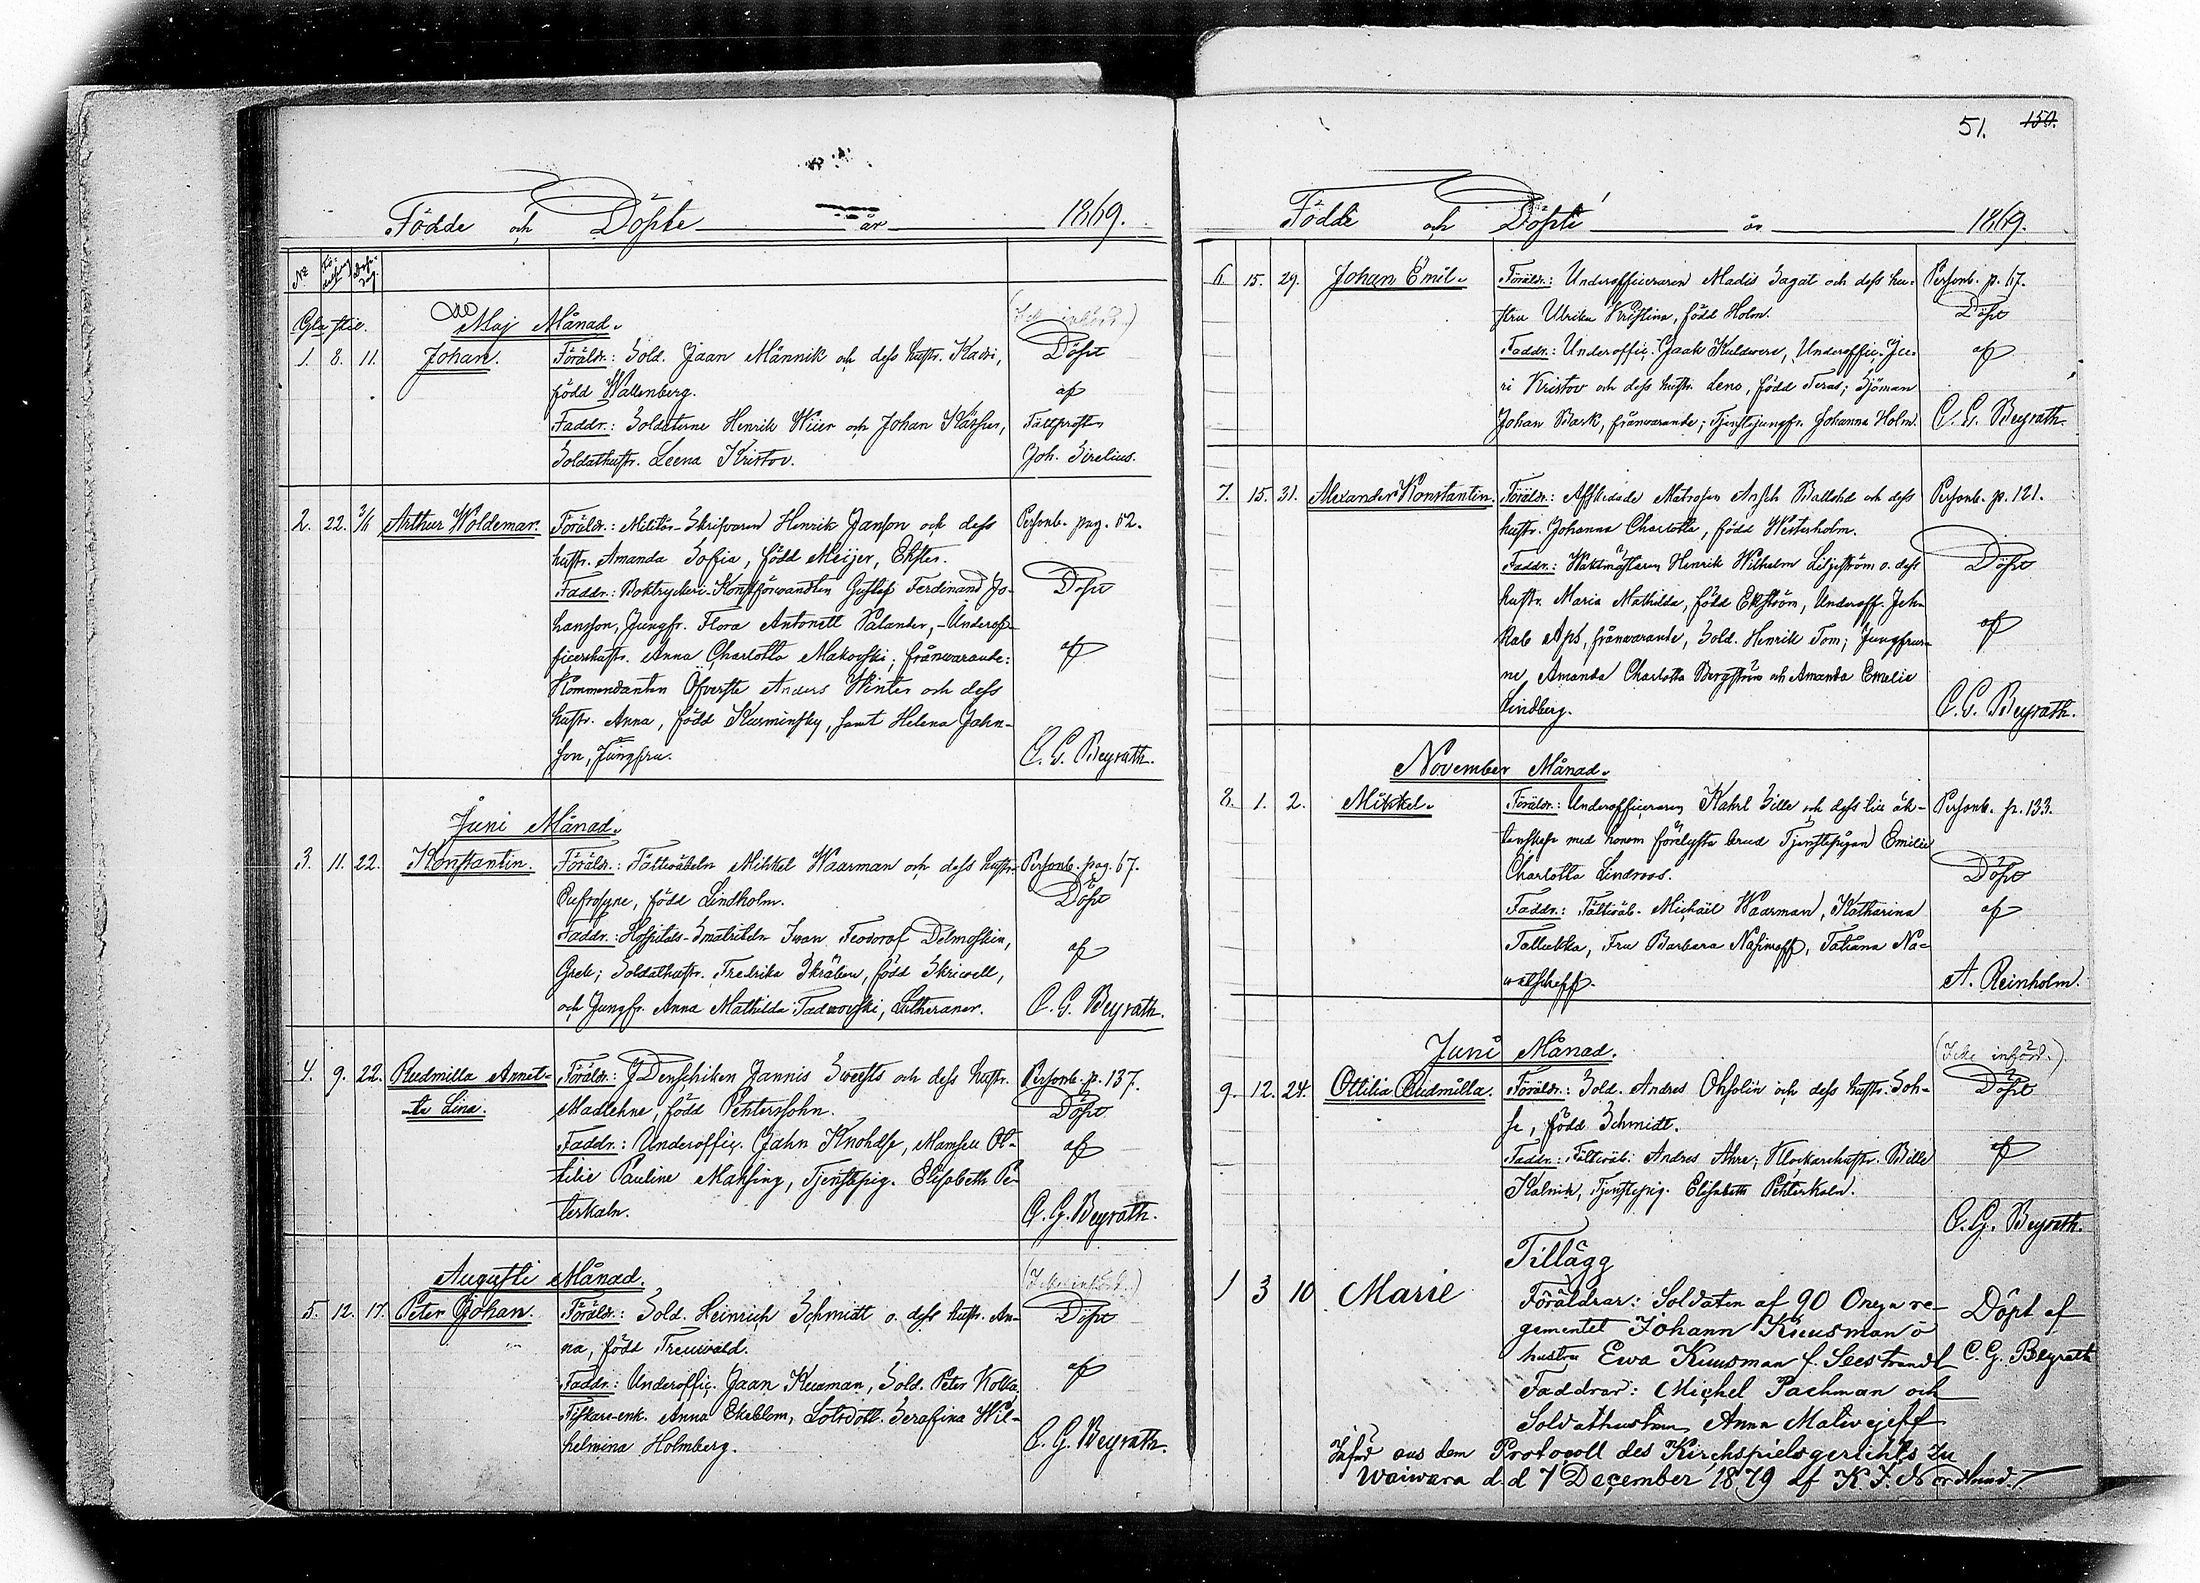 Födde och Döpte år 1869.
No Födelsedag Dopdag
Gla stil.
Maj Månad.
(Icke införd.)
1. 8. 11. Johan. Föräldr.: Sold. Jaan Männik och dess hustr. Kadri, Döpt
född Wallenberg. af
Faddr.: Soldaterne Henrik Wiier och Johan Kärper, Fältprosten
Soldathustr. Leena Kristov. Joh. Sirelius.
2. 22. 3/6 Arthur Woldemar. Föräldr.: Militär-Skrifvaren Henrik Janson och dess Personb. pag. 52.
hustr. Amanda Sofia, född Meijer, Ehster.
Faddr.: Boktryckeri-Konstförvandten Gustaf Ferdinand Jo- Döpt
hansson, Jungfr. Flora Antonett Palander, Underof-
ficershustr. Anna Charlotta Makovski; frånvarande: af
Kommendanten Öfverste Anders Winter och dess
hustr. Anna, född Kusminsky, samt Helena John-
son, Jungfru. C. G. Beyrath.
Juni Månad.
3. 11. 22. Konstantin. Föräldr.: Fältväbeln Mihkel Waarman och dess hustr. Personb. pag. 67.
Eufrosyne, född Lindholm. Döpt
Faddr.: Hospitals-Smatriteln Iwan Feodorof Delmoskin, af
Grek; Soldathustr. Fredrika Skräben, född Skriwell,
och Jungfr. Anna Mathilda Tadwovski, Lutheraner. C. G. Beyrath.
4. 9. 22. Ludmilla Annet- Föräldr.: Denschiken Jannis Sweests och dess hustr. Personb. p. 137.
te Lina. Madlehne, född Pehtersohn. Döpt
Faddr.: Underoffic. Jahn Knohdse, Mamsell Ot- af
tilie Pauline Mahsing, Tjenstepig. Elisabeth Pe-
terkaln. C. G. Beyrath.
Augusti Månad.
(Icke införd.)
5. 12. 17. Peter Johan. Föräldr.: Sold. Heinrich Schmidt o. dess hustr. An- Döpt
na, född Treuwald.
Faddr.: Underoffic. Jaan Kusman, Sold. Peter Kolka, af
Fiskare-enk. Anna Ekeblom, Lotsdott. Serafina Wil-
helmina Holmberg. C. G. Beyrath.
51. 150.
Födde och Döpte år 1869.
6. 15. 29. Johan Emil. Föräldr.: Underofficeraren Madis Sagat och dess hu- Personb. p. 67.
stru Ulrika Kristina, född Holm. Döpt
Faddr.: Underoffic. Jaak Kuldwere, Underoffic. Ju- af
ri Kristov och dess hustr. Leno, född Teras; Sjöman
Johan Bark, frånvarande; Tjenstejungfr. Johanna Holm. C. G. Beyrath.
7. 15. 31. Alexander Konstantin. Föräldr.: Afskedade Matrosen Ansch Ballohd och dess Personb. p. 121.
hustr. Johanna Charlotta, född Westerholm.
Faddr.: Waktmästaren Henrik Wilhelm Liljeström o. dess Döpt
hustr. Maria Mathilda, född Ekström, Underoff. Jeh-
kab Aps, frånvarande, Sold. Henrik Tom; Jungfrur- af
ne Amanda Charlotta Bergström och Amanda Emelie
Lindberg. C. G. Beyrath.
November Månad.
8. 1. 2. Mihkel. Föräldr.: Underofficeraren Kahrl Sille och dess till äk- Personb. p. 133.
tenskap med honom förelysta brud Tjenstepigan Emilie
Charlotta Lindroos. Döpt
Faddr.: Fältväb. Michäil Waarman, Katharina af
Tallukka, Fru Barbara Nasimoff, Tatiana Na-
walscheff. A. Reinholm.
Juni Månad.
(Icke införd.)
9. 12. 24. Ottilia Ludmilla. Föräldr.: Sold. Andres Ohsolin och dess hustr. Soh- Döpt
fe, född Schmidt.
Faddr.: Fältväb. Andres Ahre; Klockarehustr. Bille af
Kalnin, Tjenstepig. Elisabeth Pehterkaln.
C. G. Beyrath.
Tillägg
1 3 10 Marie Föräldrar: Soldaten af 90 Onega re- Döpt af
gementet Johann Kuusman o
hustru Ewa Kuusman f. Seestrandt C. G. Beyrath
Faddrar: Michel Pachman och
Soldathustrun Anna Matwejeff
Införd aus dem Protocoll des Kirchspielsgerichts zu
Waiwara d d 7 December 1879 af K. J. Nordlund.